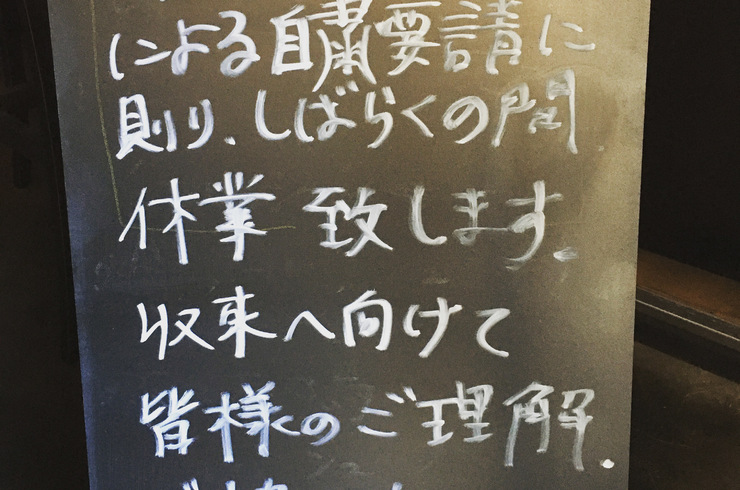 による自粛要請に
則り、しばらくの間
休業 致します。
収束へ向けて
皆様のご理解、